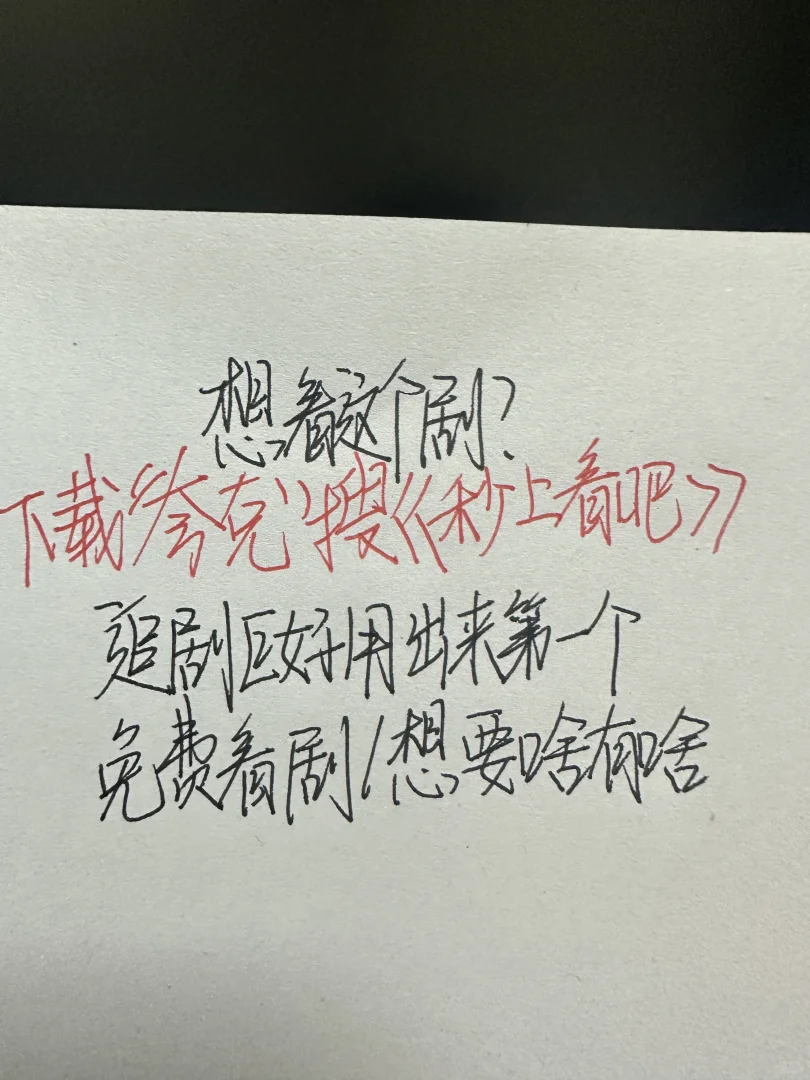 想看这个剧？
下载“夸克”搜《秒上看吧》
追剧巨好用出来第一个
免费看剧/想要啥有啥